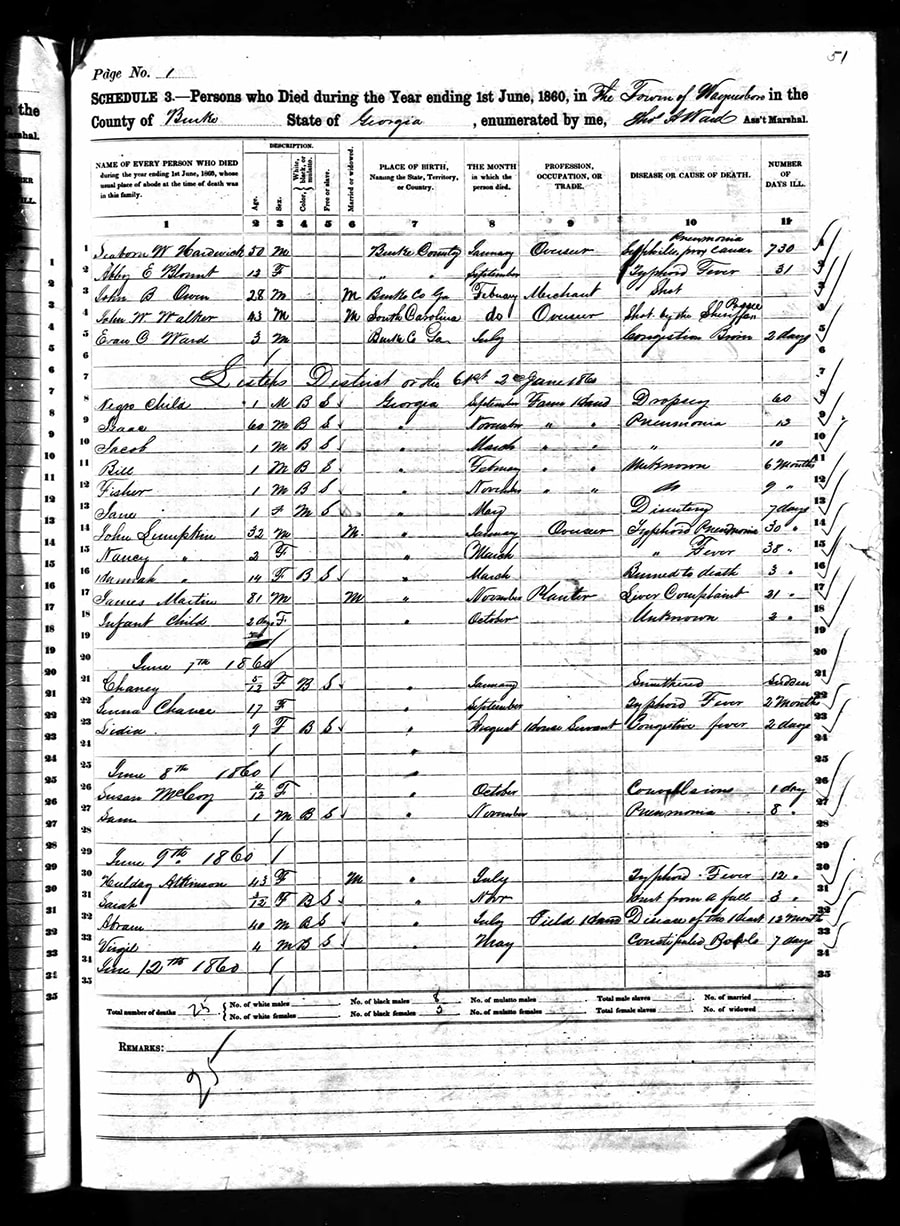 51
Page No. 1
SCHEDULE 3.—Persons who Died during the Year ending 1st June, 1860, in The Town of Waynesboro in the
County of Burke State of Georgia, enumerated by me, Thos A Ward Ass't Marshal.
DESCRIPTION.
NAME OF EVERY PERSON WHO DIED during the year ending 1st June, 1860, whose usual place of abode at the time of death was in this family. Age. Sex. Color, White, black, or mulatto. Free or slave. Married or widowed. PLACE OF BIRTH, Naming the State, Territory, or Country. THE MONTH in which the person died. PROFESSION, OCCUPATION, OR TRADE. DISEASE OR CAUSE OF DEATH. NUMBER OF DAYS ILL.
1 2 3 4 5 6 7 8 9 10 11
Pneumonia
1 Seaborn W Hardwick 50 M Burke County January Overseer 730 1
2 Abby E Blount 12 F " " September Typhoid Fever 31 2
3 John B Owen 28 M M Burke Co Ga Febuary Merchant Shot 3
4 John W Walker 43 M M South Carolina do Overseer Shot by the Sheriff 4
5 Evan C Ward 3 M Burke C Ga July Congestion Brain 2 days 5
6 6
7 District or the 61st 2 June 1860 7
8 Negro Child 1 M B S Georgia September Farm Hand Dropsy 60 8
9 Isaac 60 M B S " November " " Pneumonia 13 9
10 Jacob 1 M B S " March " " " 10 10
11 Bill 1 M B S " Febuary " " Unknown 6 Months 11
12 Fisher 1 M B S " November " " do 9 " 12
13 Jane 1 F M S " May 7 days 13
14 John Lumpkin 32 M M " January Overseer Typhoid Pneumonia 30 " 14
15 Nancy " 2 F " March " Fever 38 " 15
16 Hannah " 14 F B S " March Burned to death 3 " 16
17 James Martin 81 M M " November Planter Liver Complaint 21 " 17
18 Infant Child 2 days F " October Unknown 2 " 18
19 19
20 June 7th 1860 20
21 Chaney 5/12 F B S " January Smuthered Sudden 21
22 Chance 17 F " September Typhoid Fever 2 Months 22
23 Lidia 9 F B S " August House Servant Congestive fever 2 days 23
24 " 24
25 June 8th 1860 " 25
26 Susan McCoy F " October Convulsions 1 day 26
27 Sam 1 M B S " November Pneumonia 8 " 27
28 28
29 June 9th 1860 29
30 Hulday Atkinson 43 F M " July Typhoid Fever 12 " 30
31 Sarah F B S " Novr Hurt from a fall 3 " 31
32 Abram 40 M B S " July Field Hand Disease of the Heart 12 Month 32
33 Virgil 4 M B S " May Constipated 7 days 33
34 June 12th 1860 34
35 35
Total number of deaths 25 { No. of white males No. of black males 8 No. of mulatto males Total male slaves No. of married
No. of white females No. of black females 3 No. of mulatto females Total female slaves No. of widowed
REMARKS:
25